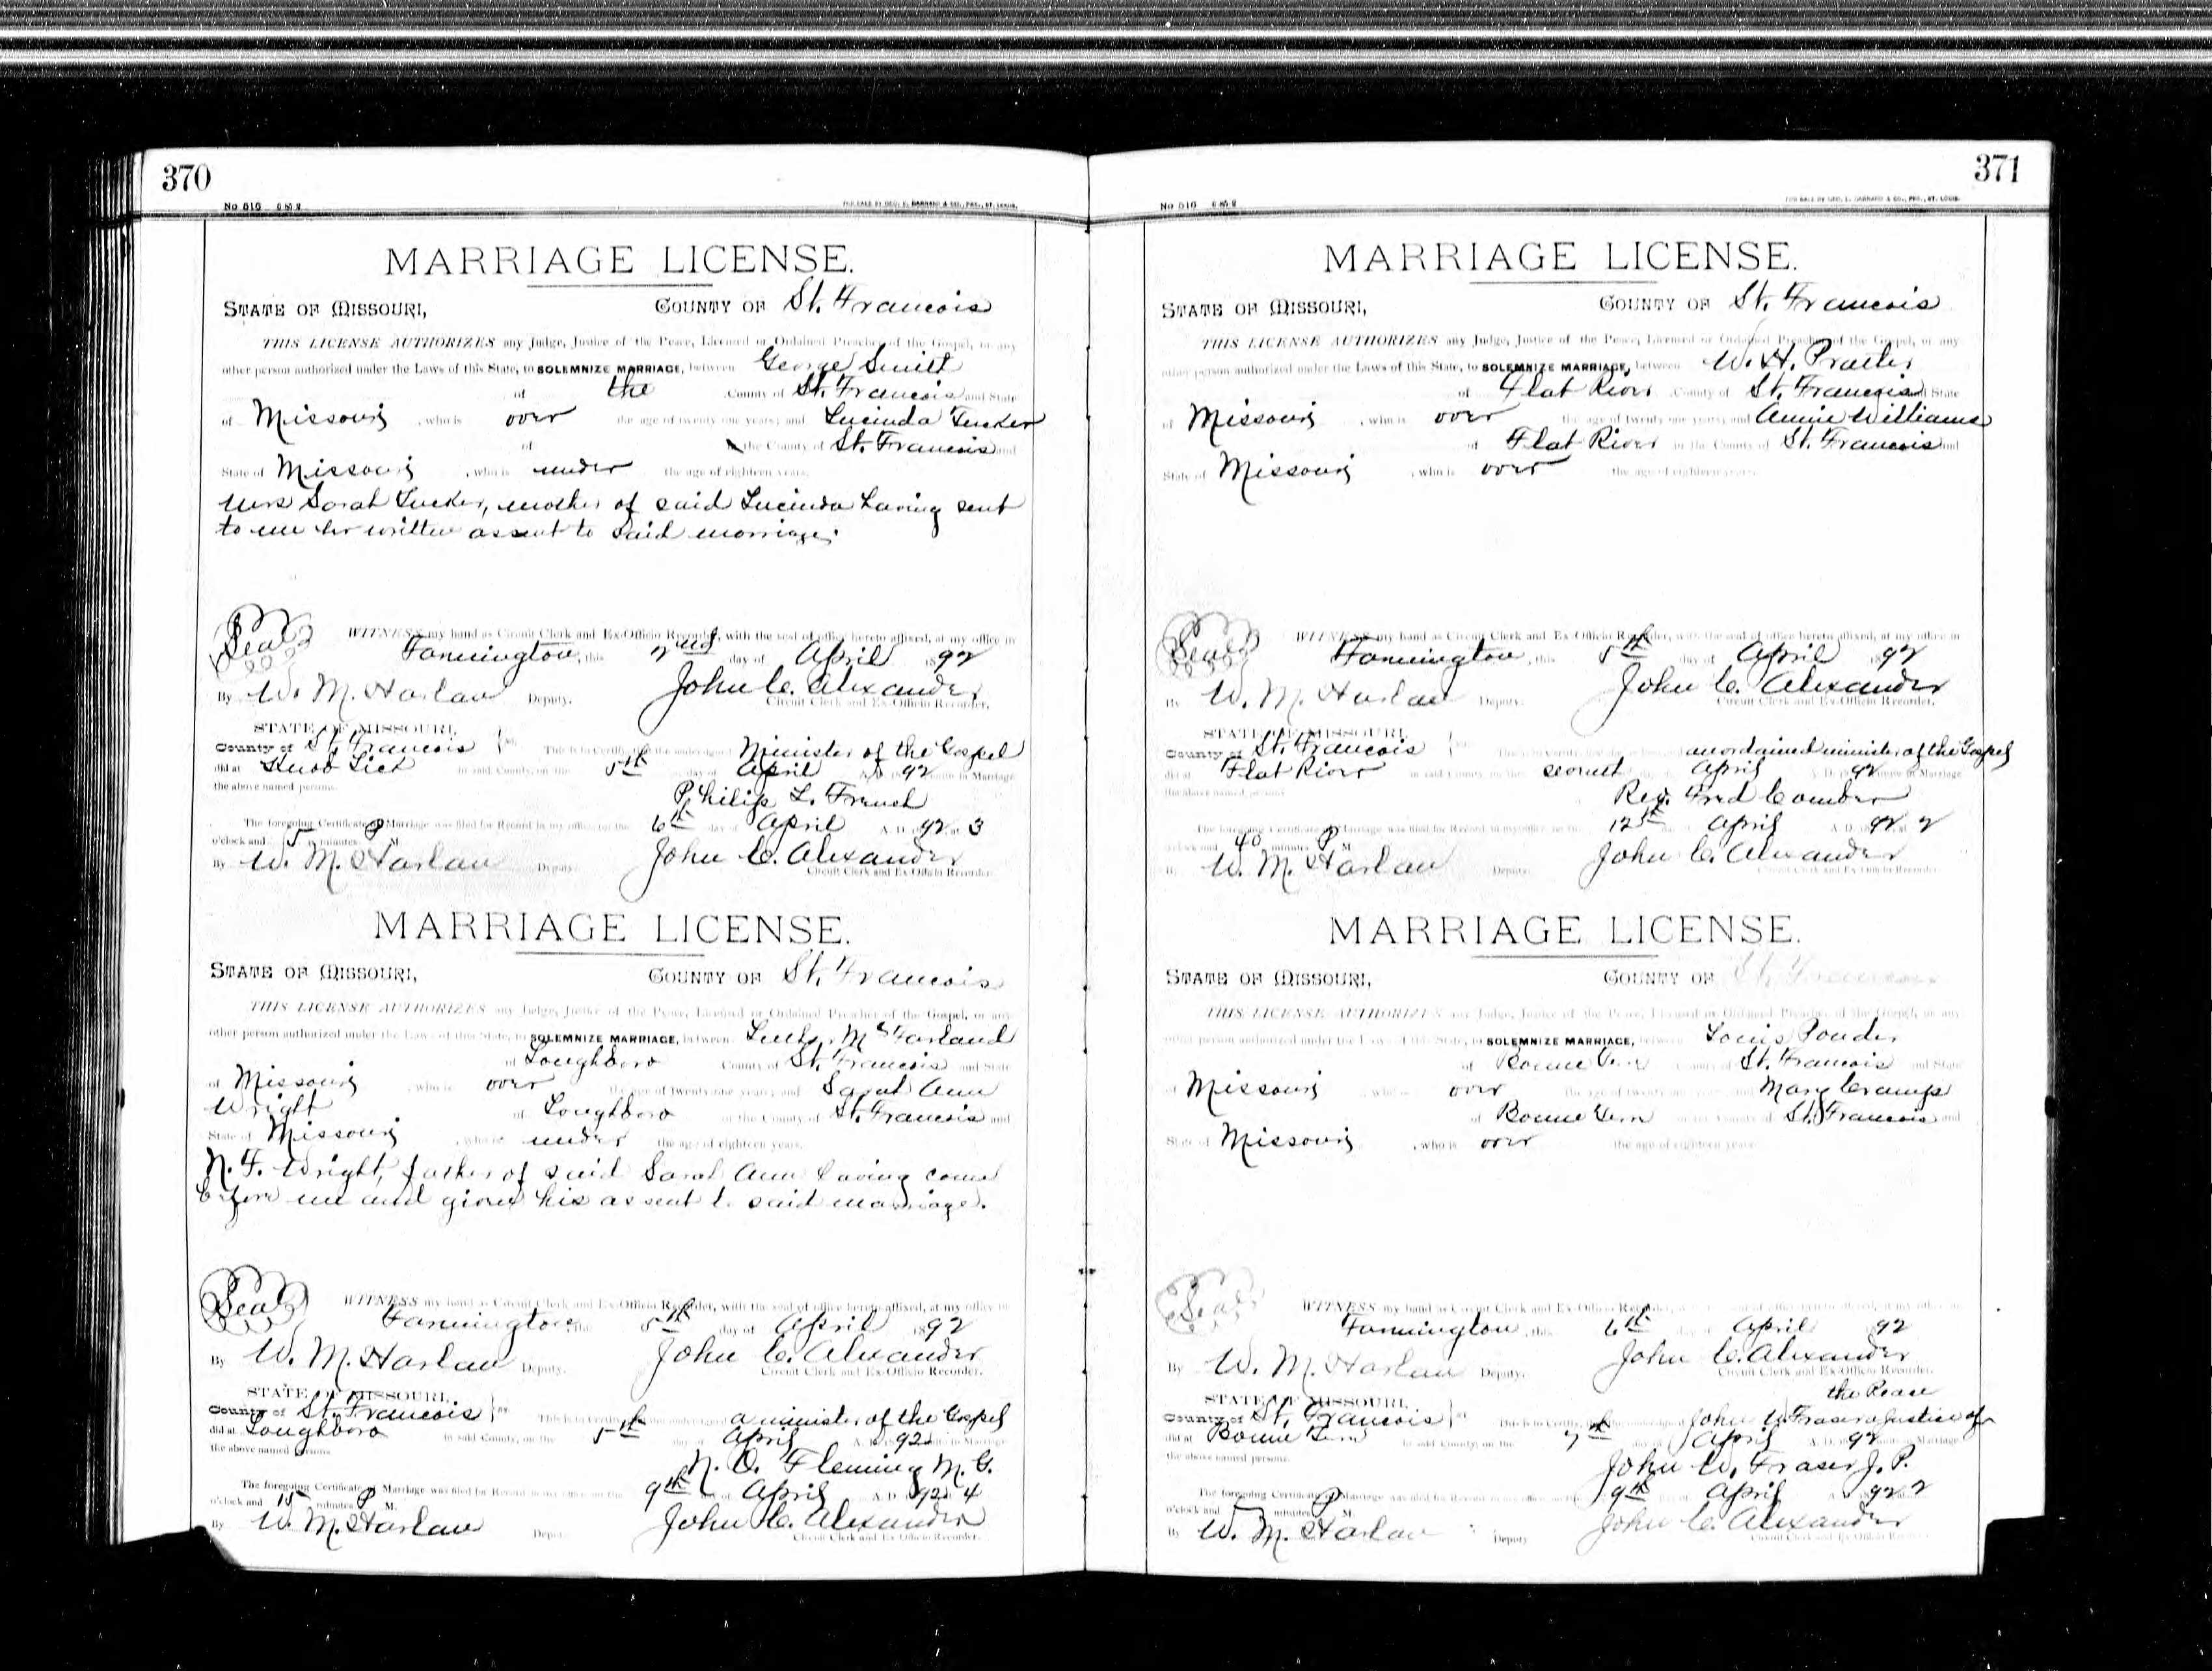 370
No 516
FOR SALE BY GEO. D. BARNARD & CO., PRS., ST. LOUIS.
MARRIAGE LICENSE.
STATE OF MISSOURI, COUNTY OF St. Francois
THIS LICENSE AUTHORIZES any Judge, Justice of the Peace, Licensed or Ordained Preacher of the Gospel, or any
other person authorized under the Laws of this State, to SOLEMNIZE MARRIAGE, between George
of the County of St. Francois and State
of Missouri, who is over the age of twenty one years; and Lucinda Tucker
of the County of St. Francois and
State of Missouri, who is under the age of eighteen years.
Mrs Sarah Tucker, mother of said Lucinda having sent
to me her written assent to said marriage;
Seal
WITNESS my hand as Circuit Clerk and Ex-Officio Recorder, with the seal of office hereto affixed, at my office in
Farmington, this 2nd day of April 1892
By W. M. Harlan Deputy. John C. Alexander
Circuit Clerk and Ex-Officio Recorder.
STATE OF MISSOURI,
County of St. Francois ss. This is to Certify, the undersigned Minister of the Gospel
did at Knob Lick in said County, on the 5th day of April A. D. 1892 unite in Marriage
the above named persons.
Philip L. French
The foregoing Certificate of Marriage was filed for Record in my office on the 6th day of April A. D. 1892 at 3
o'clock and 5 minutes P M.
By W. M. Harlan Deputy. John C. Alexander
Circuit Clerk and Ex-Officio Recorder.
MARRIAGE LICENSE.
STATE OF MISSOURI, COUNTY OF St. Francois
THIS LICENSE AUTHORIZES any Judge, Justice of the Peace, Licensed or Ordained Preacher of the Gospel, or any
other person authorized under the Laws of this State, to SOLEMNIZE MARRIAGE, between Luther McFarland
of Loughboro County of St. Francois and State
of Missouri, who is over the age of twenty one years; and Sarah Ann
Wright of Loughboro in the County of St. Francois and
State of Missouri, who is under the age of eighteen years.
N. F. Wright, father of said Sarah Ann having come
before me and given his assent to said marriage.
Seal
WITNESS my hand as Circuit Clerk and Ex-Officio Recorder, with the seal of office hereto affixed, at my office in
Farmington, this 5th day of April 1892
By W. M. Harlan Deputy. John C. Alexander
Circuit Clerk and Ex-Officio Recorder.
STATE OF MISSOURI,
County of St. Francois ss. This is to Certify, the undersigned a minister of the Gospel
did at Loughboro in said County, on the 5th day of April A. D. 1892 unite in Marriage
the above named persons.
N. O. Fleming M. G.
The foregoing Certificate of Marriage was filed for Record in my office on the 9th day of April A. D. 1892 at 4
o'clock and 15 minutes P M.
By W. M. Harlan Deputy. John C. Alexander
Circuit Clerk and Ex-Officio Recorder.
371
No 516
FOR SALE BY GEO. D. BARNARD & CO., PRS., ST. LOUIS.
MARRIAGE LICENSE.
STATE OF MISSOURI, COUNTY OF St. Francois
THIS LICENSE AUTHORIZES any Judge, Justice of the Peace, Licensed or Ordained Preacher of the Gospel, or any
other person authorized under the Laws of this State, to SOLEMNIZE MARRIAGE, between W. H. Prater
of Flat River County of St. Francois and State
of Missouri, who is over the age of twenty one years; and Annie Williams
of Flat River in the County of St. Francois and
State of Missouri, who is over the age of eighteen years.
Seal
WITNESS my hand as Circuit Clerk and Ex-Officio Recorder, with the seal of office hereto affixed, at my office in
Farmington, this 5th day of April 1892
By W. M. Harlan Deputy. John C. Alexander
Circuit Clerk and Ex-Officio Recorder.
STATE OF MISSOURI,
County of St. Francois an ordained minister of the Gospel
did at Flat River in said County, on the April A. D. 1892 unite in Marriage
the above named persons.
Rev. Fred Comber
The foregoing Certificate of Marriage was filed for Record in my office on the 12th day of April A. D. 1892 2
o'clock and 40 minutes P M.
By W. M. Harlan Deputy. John C. Alexander
Circuit Clerk and Ex-Officio Recorder.
MARRIAGE LICENSE.
STATE OF MISSOURI, COUNTY OF St. Francois
THIS LICENSE AUTHORIZES any Judge, Justice of the Peace, Licensed or Ordained Preacher of the Gospel, or any
other person authorized under the Laws of this State, to SOLEMNIZE MARRIAGE, between Louis Ponder
of Bonne Terre County of St. Francois and State
of Missouri who is over the age of twenty one years; and Mary Cramp
of Bonne Terre in the County of St. Francois and
State of Missouri, who is over the age of eighteen years.
Seal
WITNESS my hand as Circuit Clerk and Ex-Officio Recorder, with the seal of office hereto affixed, at my office in
Farmington, this 6th day of April 1892
By W. M. Harlan Deputy. John C. Alexander
Circuit Clerk and Ex-Officio Recorder.
the Peace
STATE OF MISSOURI,
County of St. Francois ss. This is to Certify, the undersigned John W. Fraser a Justice of
did at Bonne Terre in said County, on the 7th day of April A. D. 1892 unite in Marriage
the above named persons.
John W. Fraser J. P.
The foregoing Certificate of Marriage was filed for Record in my office on the April 1892 2
o'clock and 5 minutes P M.
By W. M. Harlan Deputy John C. Alexander
Circuit Clerk and Ex-Officio Recorder.